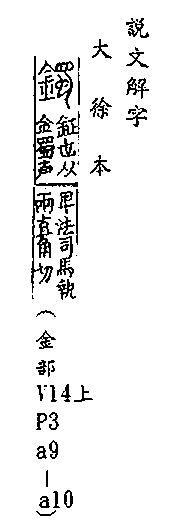 説文解字
大徐本
鐲
鉦也从
金蜀声
法司馬執
直角切
(金部
V14上
P3
a9
—
a10)